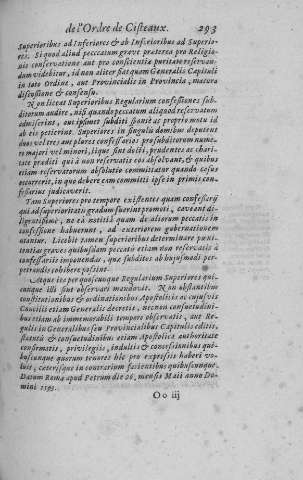 de l'Ordre de Cisteaux. 293
Superioribus ad Inferiores & ab Inferioribus ad Superio-
res. Si quod aliud peccatum grave praeterea pro Religio-
nis conservatione aut pro conscientiæ puritate reservan-
dum videbitur, id non aliter fiat quam Generalis Capituli
in toto Ordine, aut Provincialis in Provincia, matura
discussione & consensu.
Non liceat Superioribus Regularium confessiones sub-
ditorum audire, nisi quando peccatum aliquod reservatum
admiserint, aut ipsimet subditi sponte ac proprio motu id
ab eis petierint. Superiores in singulis domibus deputent
duos vel tres aut plures confessarios pro subditorum nume-
ro majori vel minori, iique sint docti, prudentes ac chari-
tate prediti qui à non reservatis eos absolvant, & quibus
etiam reservatorum absolutio committatur quando casus
occurrerit, in quo debere eam committi ipse in primis con-
fessarius judicaverit.
Tam Superiores pro tempore existentes quam confessarij
qui ad superioritatis gradum fuerint promoti, caveant di-
ligentissime, ne ea notitia quam de aliorum peccatis in
confessione habuerunt, ad exteriorem gubernationem
utantur. Licebit tamen superioribus determinare pœni-
tentias graves quibusdam peccatis etiam non reservatis à
confessariis imponendas, quæ subditos ab hujusmodi per-
petrandis cohibere possint.
Atque ita per quoscunque Regularium Superiores qui-
cunque illi sint observari mandavit. Non obstantibus
constitutionibus & ordinationibus Apostolicis ac cujusvis
Concilii etiam Generalis decretis, necnon consuetudini-
bus etiam ab immemorabili tempore observatis, aut Re-
gulis in Generalibus seu Provincialibus Capitulis editis,
statutis & consuetudinibus etiam Apostolica authoritate
confirmatis, privilegiis, indultis & concessionibus qui-
buscunque quorum tenores hîc pro expressis haberi vo-
luit, ceterisque in contrarium facientibus quibuscunque.
Datum Roma apud Petrum die 26. mensis Maii anno Do-
mini 1593.
Oo iij